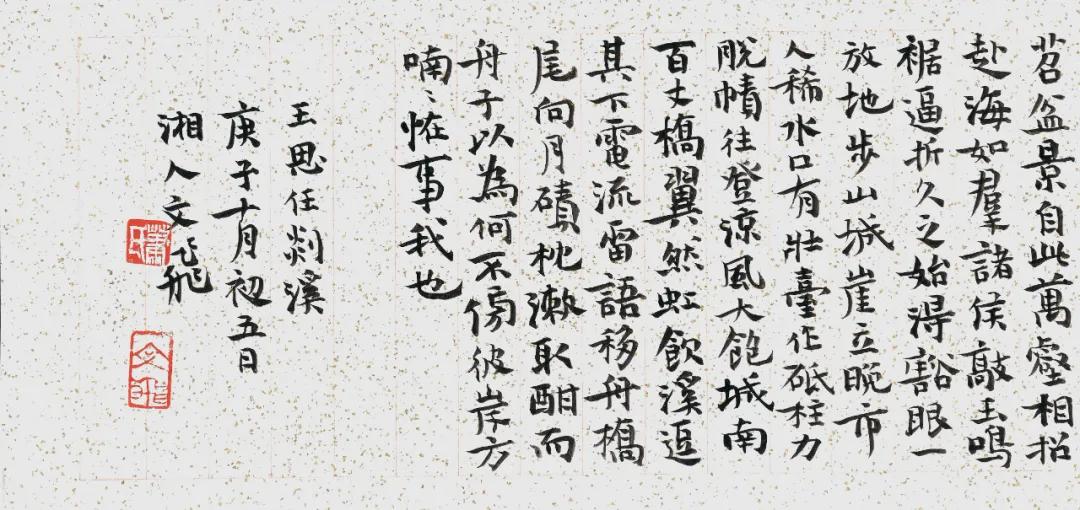 苕盆景自此萬壑相招
赴海如羣諸侯敲玉鳴
裾逼折久之始得豁眼一
放地步山城崖立晚市
人稀水口有壯臺作砥柱力
脫幘往登涼風大飽城南
百丈橋翼然虹飲溪逗
其下電流雷語移舟橋
尾向月磧枕漱取酣而
舟子以為何不傍彼岸方
喃〻恠事我也
王思任剡溪
庚子十月初五日
湘人文飛
蕭氏
文飛